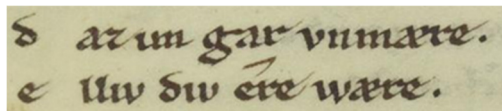 d ar un gar vnmære.
e lliv div ēre wære.